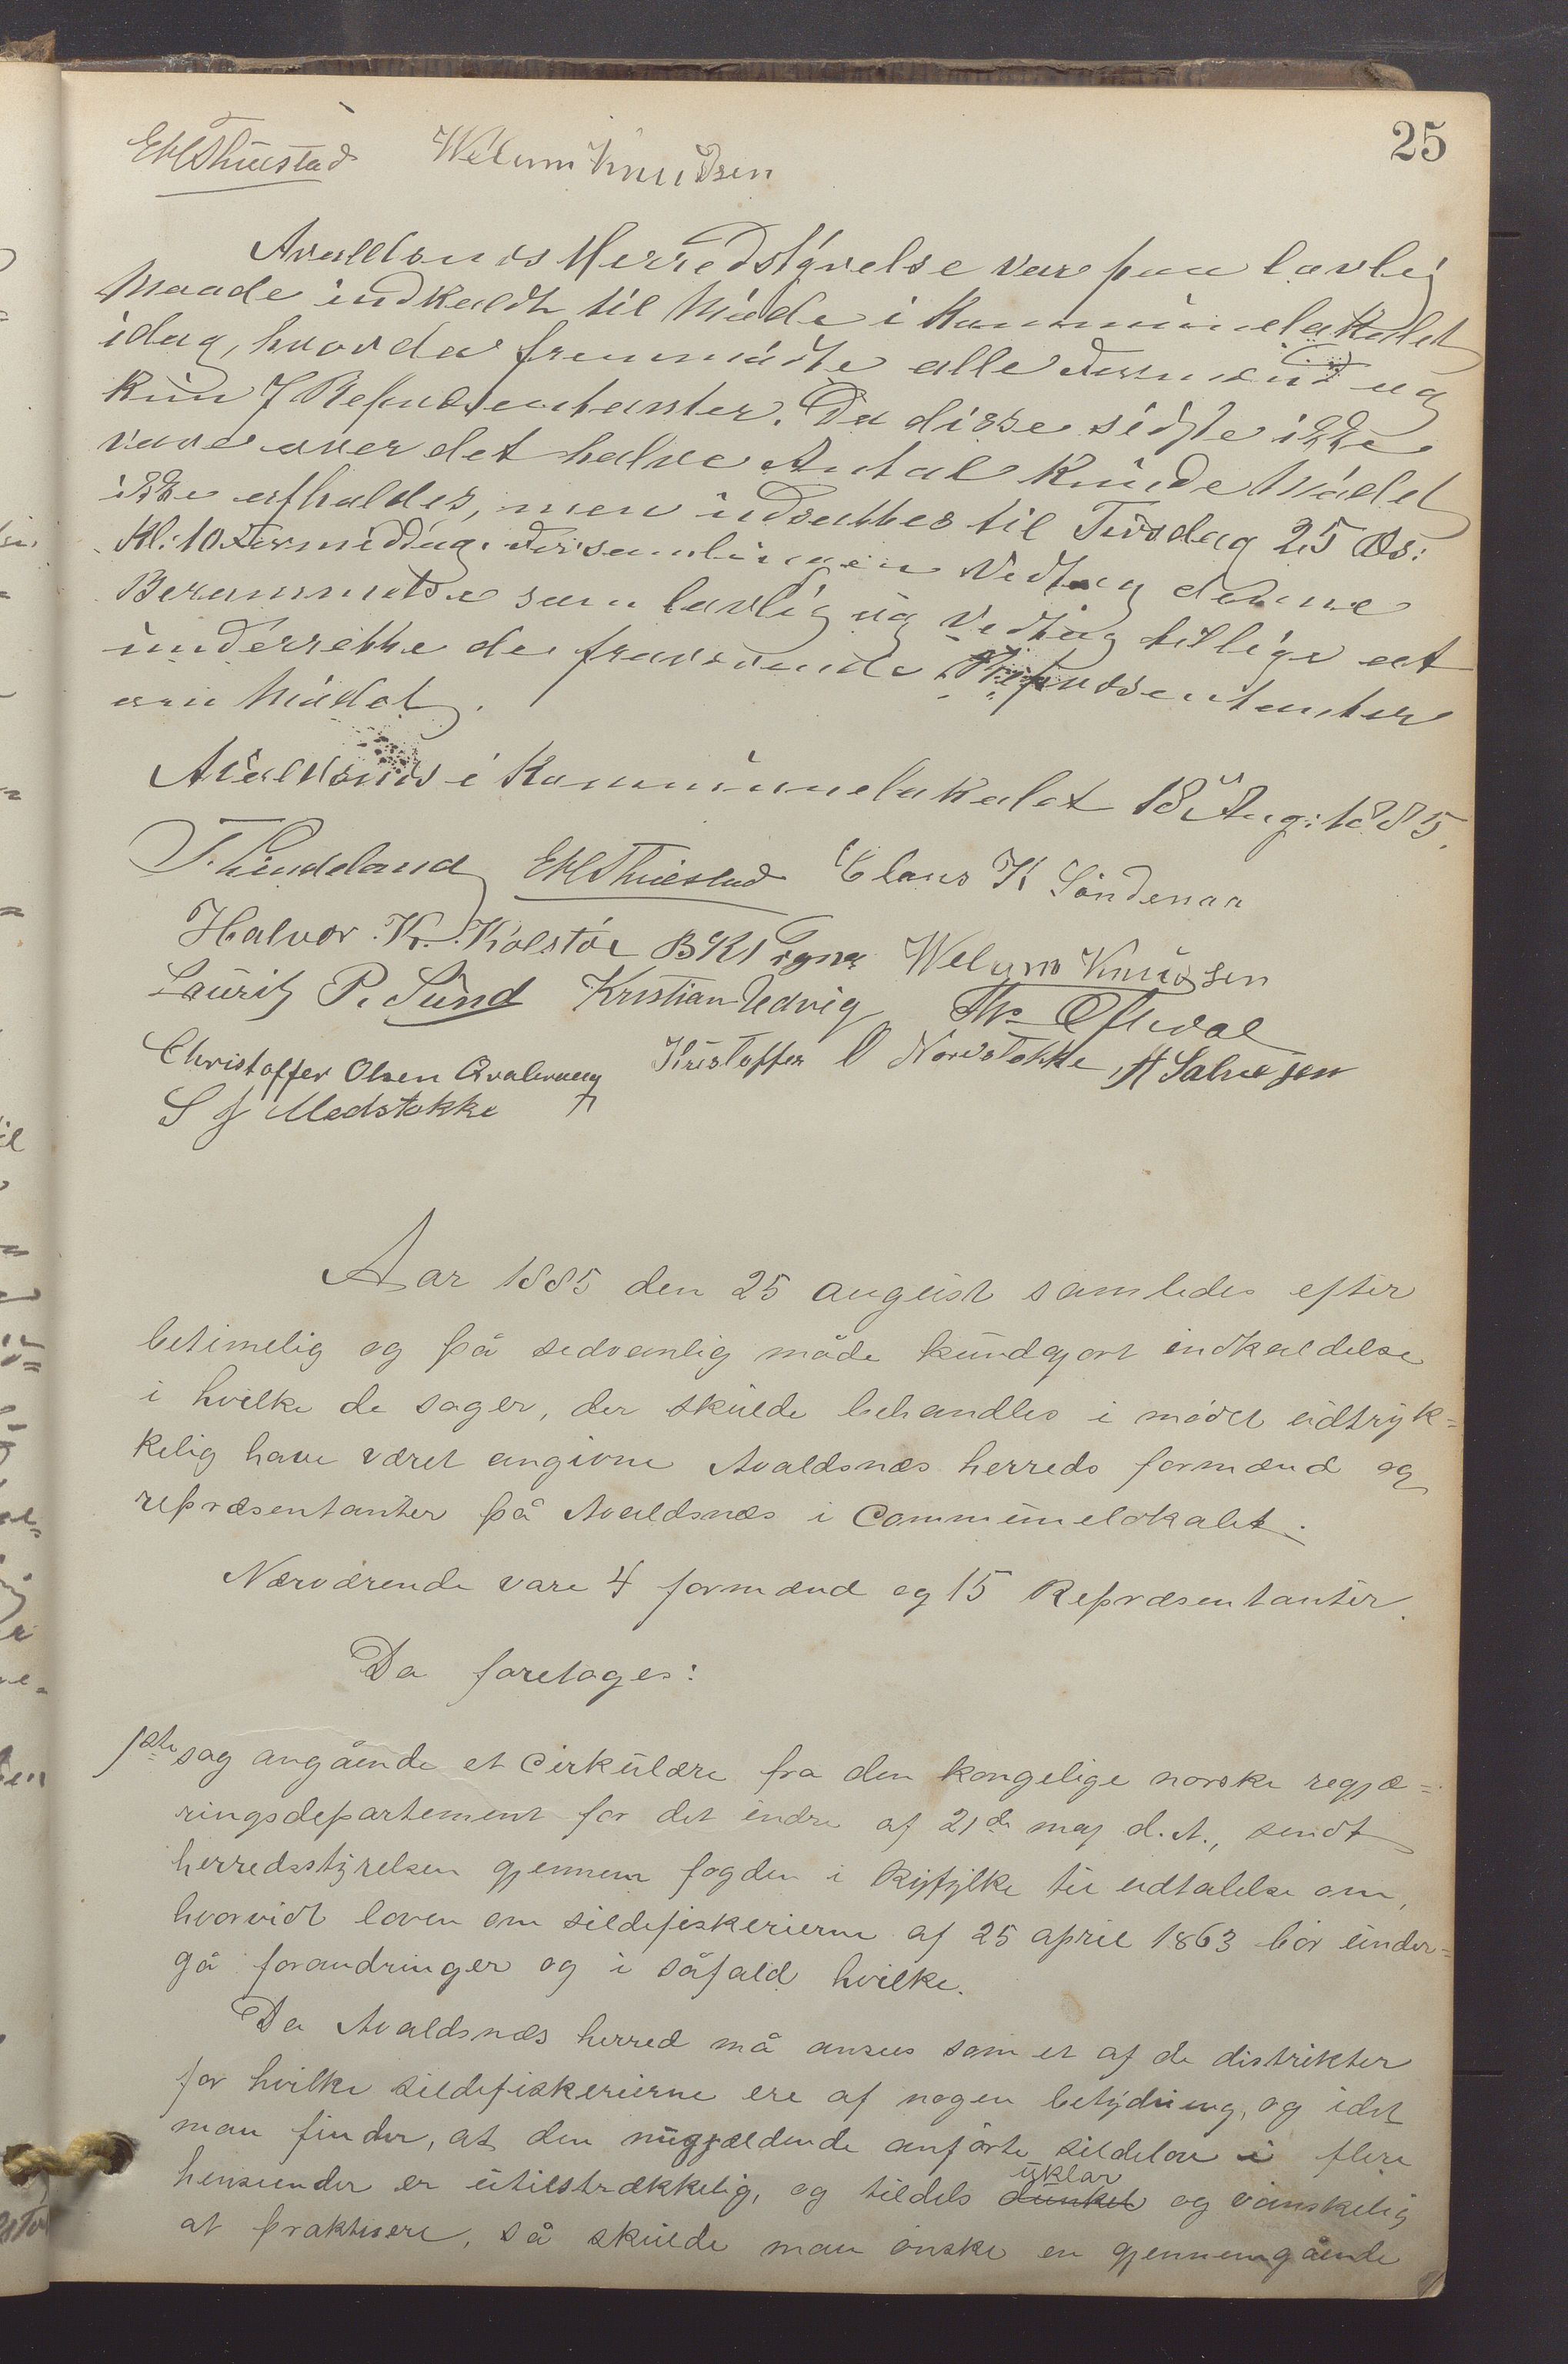 25
Velum Knudsen
Avaldsnes Herredstyrelse var paa lovlig
Maade indkaldt til Møde i Kommunelokalet
idag, hvor da fremmødte alle Formænd og
kun 7 Repræsentanter. Da disse sidste ikke
vare over det halve Antal kunde Mødet
ikke afholdes, men udsattes til Tirsdag 25 ds:
Kl: 10 Formiddag. Forsamlingen vedtog denne
Berammelse som lovlig og vedtog tillige at
underrette de fraværende Repræsentanter
om Mødet.
Avaldsnes i Kommunelokalet 18 Aug: 1885.
T. Lindeland Claus K Søndenaa
Halvor K. Kolstøe Velum Knudsen
Lauritz P. Sund Kristian Udvig
Christoffer Olsen Kristoffer O Nordstokke,
S J Medstokke
Aar 1885 den 25 august samledes efter
betimelig og på sedvanlig måde kundgjort indkaldelse
i hvilke de sager, der skulde behandles i mødet udtryk=
kelig have været angivne Avaldsnæs herreds formænd og
repræsentanter på Avaldsnæs i Communelokalet.
Nærværende vare 4 formænd og 15 Repræsentanter.
Da foretoges:
1ste sag angående et Cirkulære fra den kongelige norske regjæ=
ringsdepartement for det indre af 21de maj d. A., sendt
herredsstyrelsen gjennem fogden i Ryfylke til udtalelse om,
hvorvidt loven om sildefiskerierne af 25 april 1863 bør under=
gå forandringer og i såfald hvilke.
Da Avaldsnæs herred må ansees som et af de distrikter
for hvilke sildefiskerierne ere af nogen betydning, og idet
man finder, at den nugjældende anførte sildelov i flere
henseender er utilstrækkelig, og tildels dunkel uklar og vanskelig
at praktisere, så skulde man ønske en gjennemgående